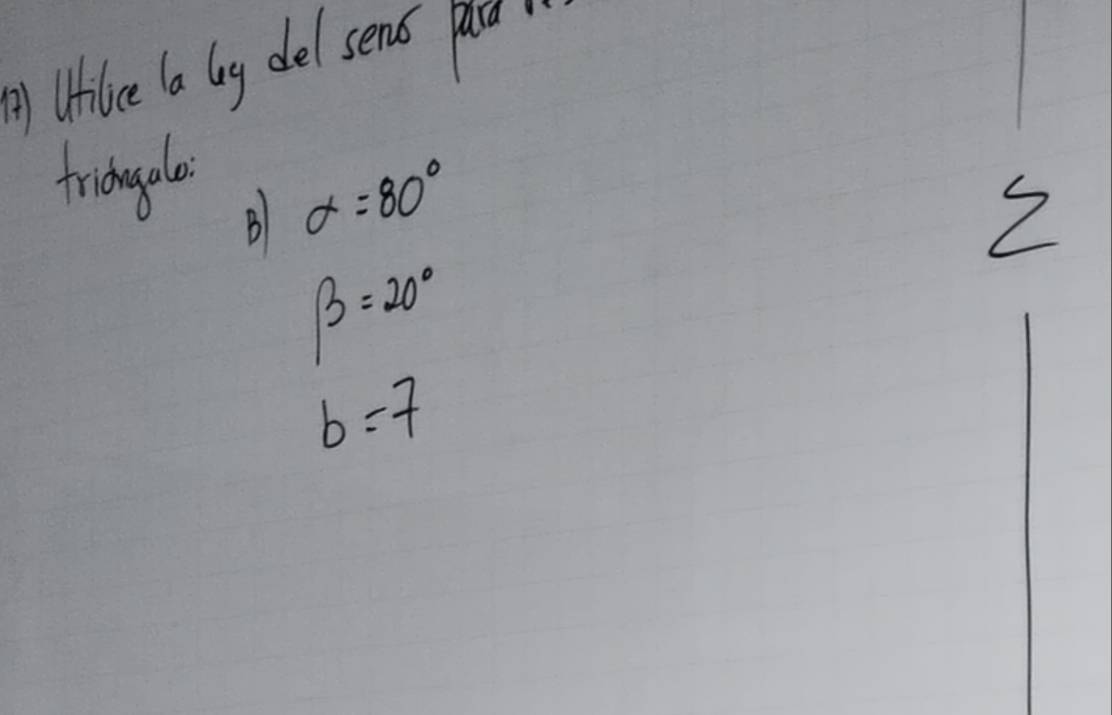 17) Utilice la ley del seno para
triángulo:
B) α = 80°
β = 20°
b = 7
Σ